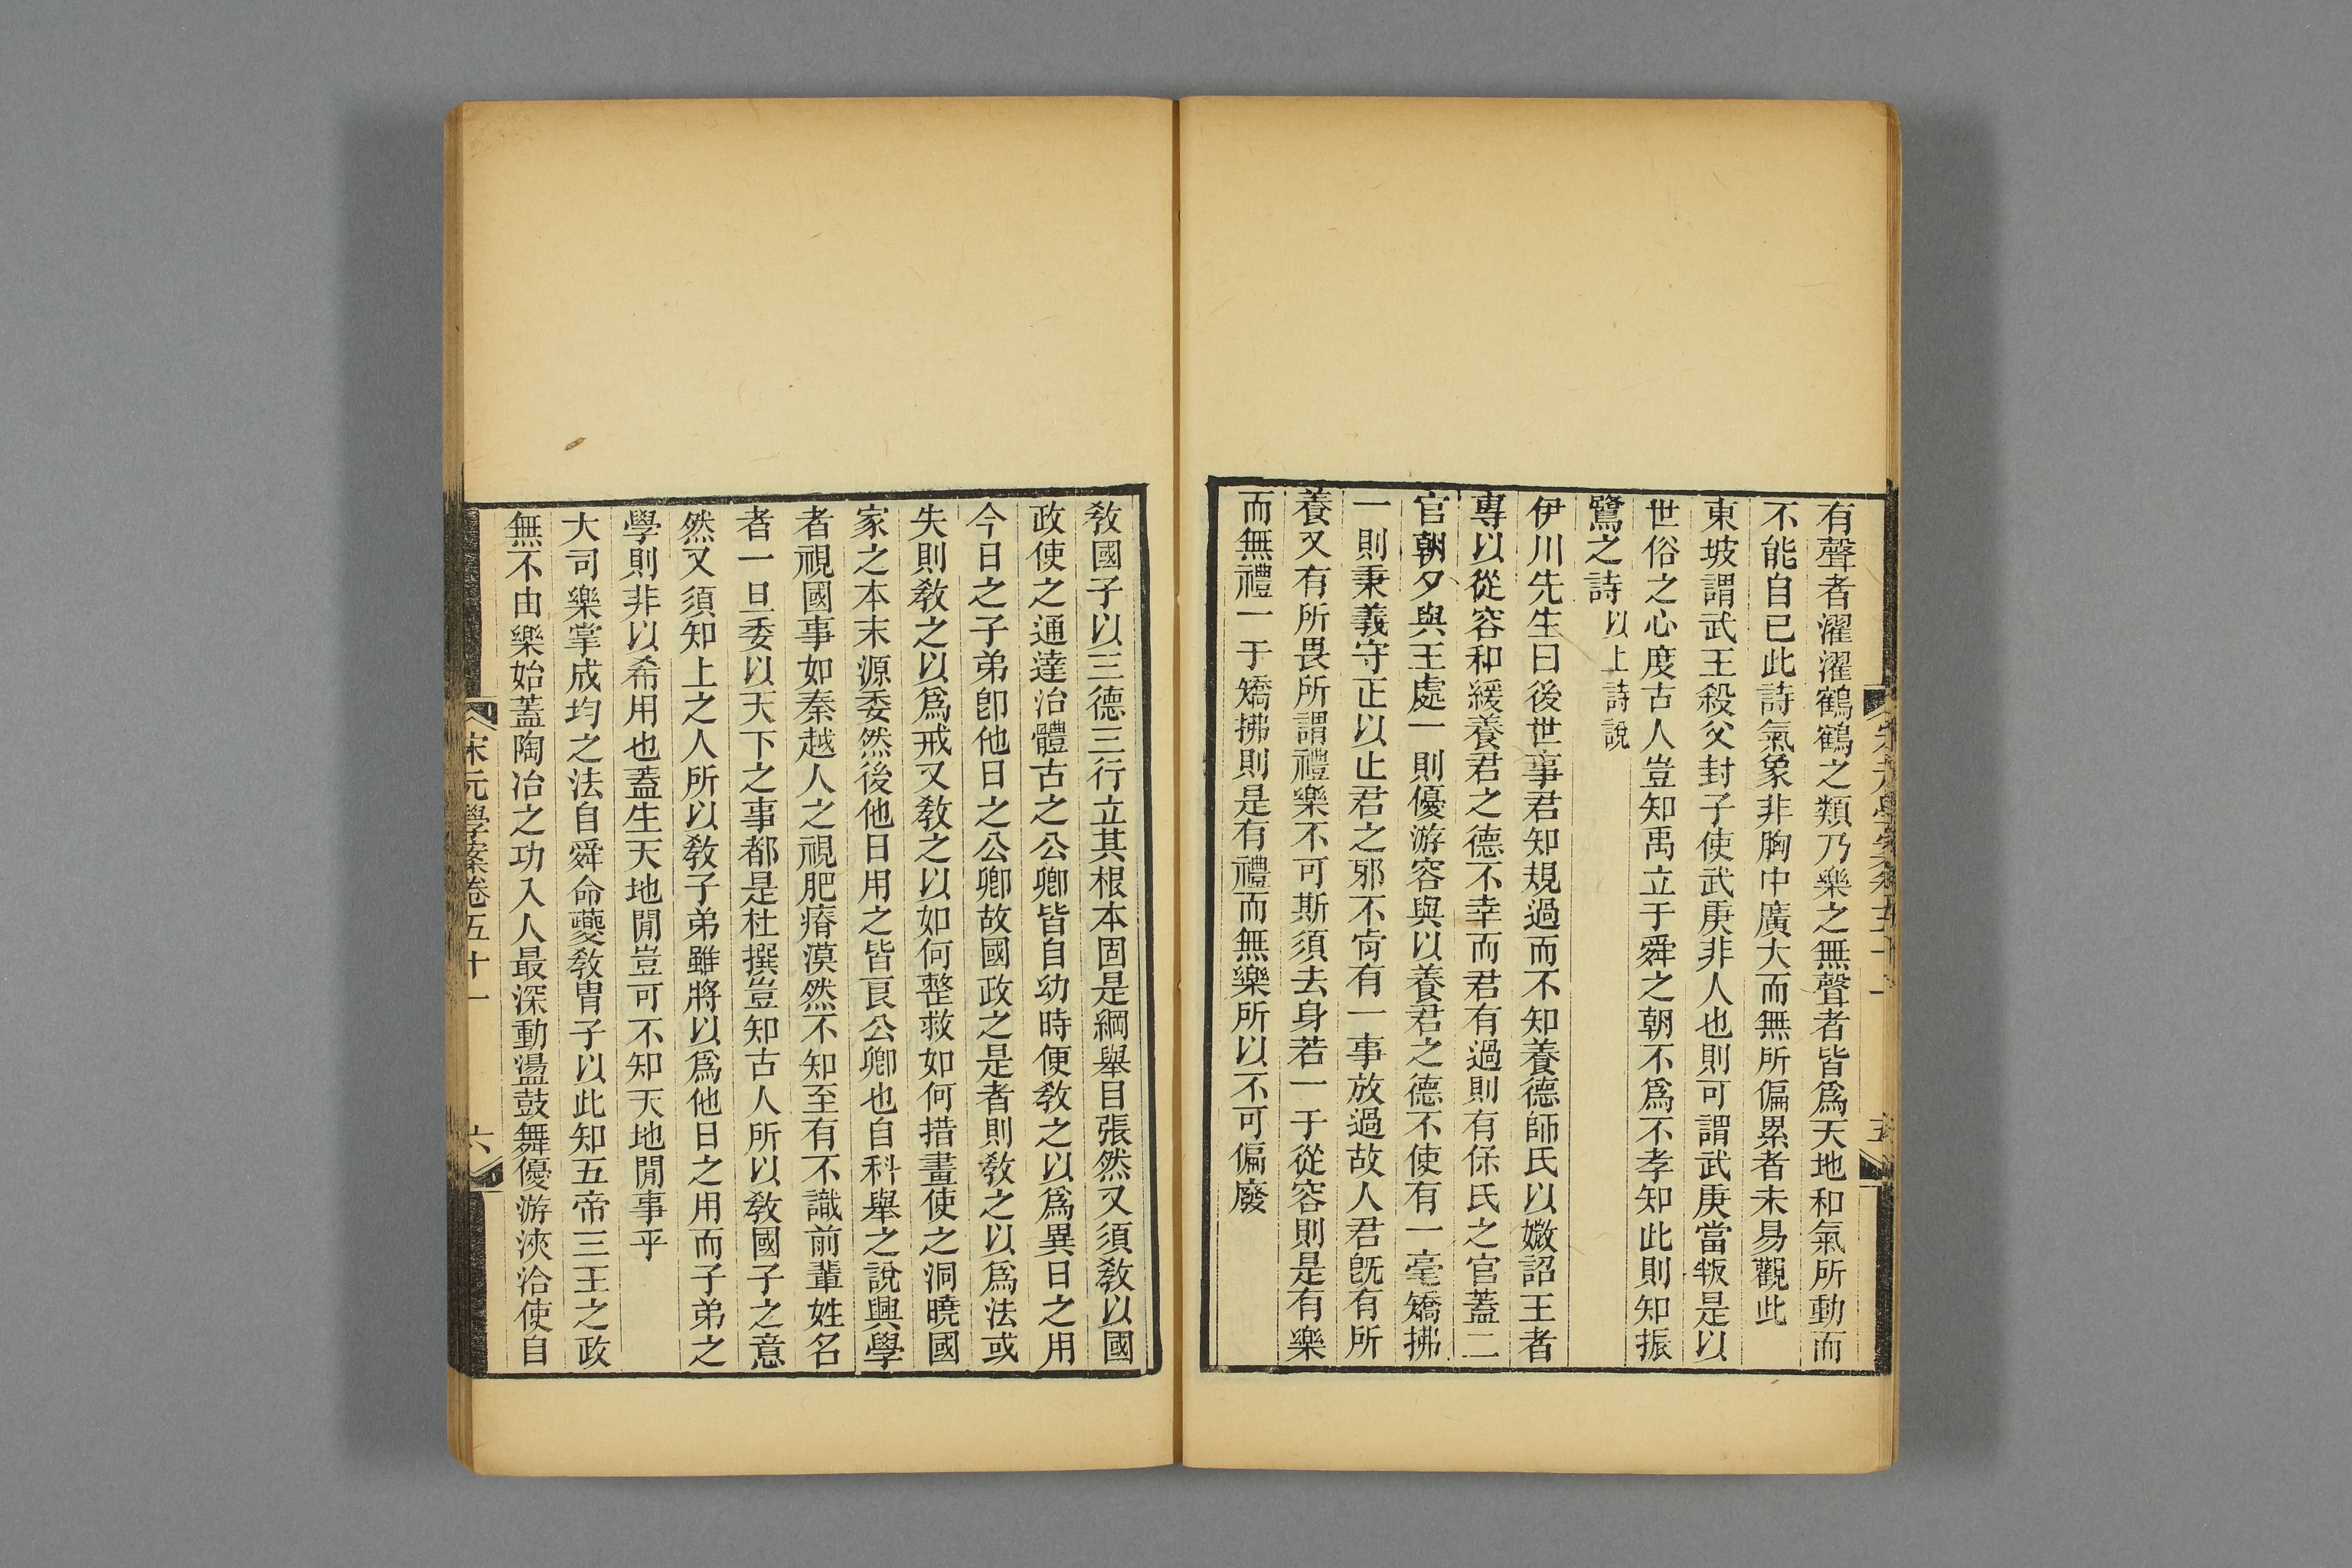 有聲者濯濯鶴鶴之類乃樂之無聲者皆爲天地和氣所動而
不能自已此詩氣象非胸中廣大而無所偏累者未易觀此
東坡謂武王殺父封子使武庚非人也則可謂武庚當叛是以
世俗之心度古人豈知禹立于舜之朝不爲不孝知此則知振
鷺之詩以上詩說
伊川先生曰後世事君知規過而不知養德師氏以媺詔王者
專以從容和緩養君之德不幸而君有過則有保氏之官蓋二
官朝夕與王處一則優游容與以養君之德不使有一毫矯拂
一則秉義守正以止君之邪不肯有一事放過故人君旣有所
養又有所畏所謂禮樂不可斯須去身若一于從容則是有樂
而無禮一于矯拂則是有禮而無樂所以不可偏廢
敎國子以三德三行立其根本固是綱舉目張然又須敎以國
政使之通達治體古之公卿皆自幼時便敎之以爲異日之用
今日之子弟卽他日之公卿故國政之是者則敎之以爲法或
失則敎之以爲戒又敎之以如何整救如何措畫使之洞曉國
家之本末源委然後他日用之皆良公卿也自科舉之說興學
者視國事如秦越人之視肥瘠漠然不知至有不識前輩姓名
者一旦委以天下之事都是杜撰豈知古人所以敎國子之意
然又須知上之人所以敎子弟雖將以爲他日之用而子弟之
學則非以希用也蓋生天地閒豈可不知天地閒事乎
大司樂掌成均之法自舜命夔敎胄子以此知五帝三王之政
無不由樂始蓋陶冶之功入人最深動盪鼓舞優游浹洽使自
宋元學案卷五十一
六